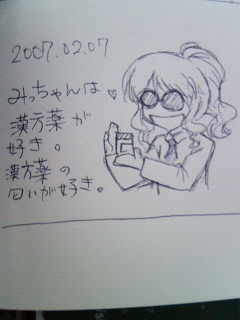 2007.02.07
みっちゃんは♥
漢方薬が
好き。
漢方薬の
匂いが好き。